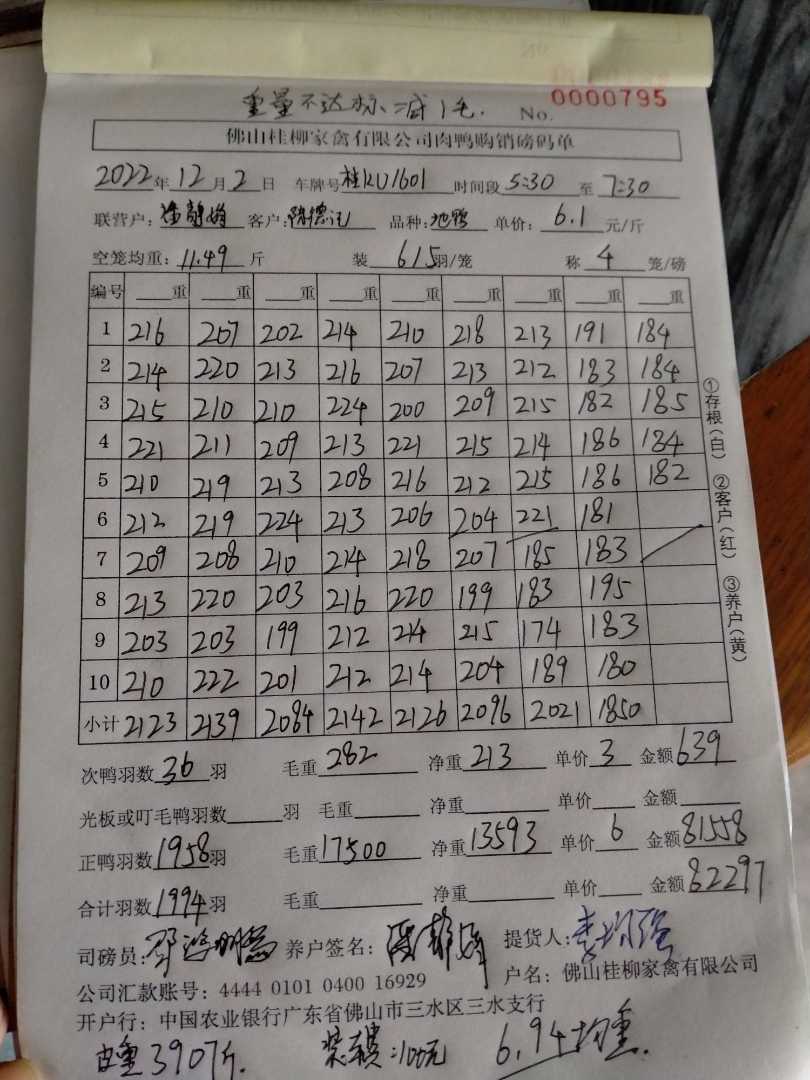 重量不达标减1毛.
No. 0000795
佛山桂柳家禽有限公司肉鸭购销磅码单
2022年12月2日 车牌号桂KU1601 时间段5:30至7:30
联营户: 客户:陈德记 品种: 单价:6.1元/斤
空笼均重:11.49斤 装6/5羽/笼 称4笼/磅
编号 重 重 重 重 重 重 重 重 重
1 216 207 202 214 210 218 213 191 184
2 214 220 213 216 207 213 212 183 184
3 215 210 210 224 200 209 215 182 185
4 221 211 209 213 221 215 214 186 184
5 210 219 213 208 216 212 215 186 182
6 212 219 224 213 206 204 221 181
7 209 208 210 214 218 207 185 183
8 213 220 203 216 220 199 183 195
9 203 203 199 212 214 215 174 183
10 210 222 201 212 214 204 189 180
小计 2123 2139 2084 2142 2126 2096 2021 1850
①存根(白) ②客户(红) ③养户(黄)
次鸭羽数36羽 毛重282 净重213 单价3 金额639
光板或叮毛鸭羽数羽 毛重 净重 单价 金额
正鸭羽数1958羽 毛重17500 净重13593 单价6 金额81558
合计羽数1994羽 毛重 净重 单价 金额82297
司磅员: 养户签名: 提货人:
公司汇款账号:4444 0101 0400 16929 户名:佛山桂柳家禽有限公司
开户行:中国农业银行广东省佛山市三水区三水支行
皮重3907斤. 装车费:100元 6.94均重.